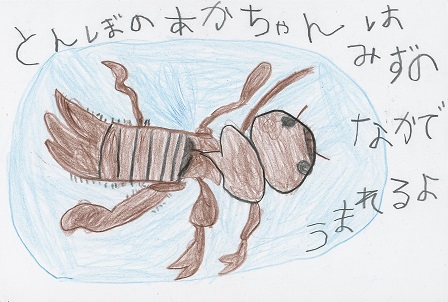 とんぼのあかちゃんは
みずの
なかで
うまれるよ